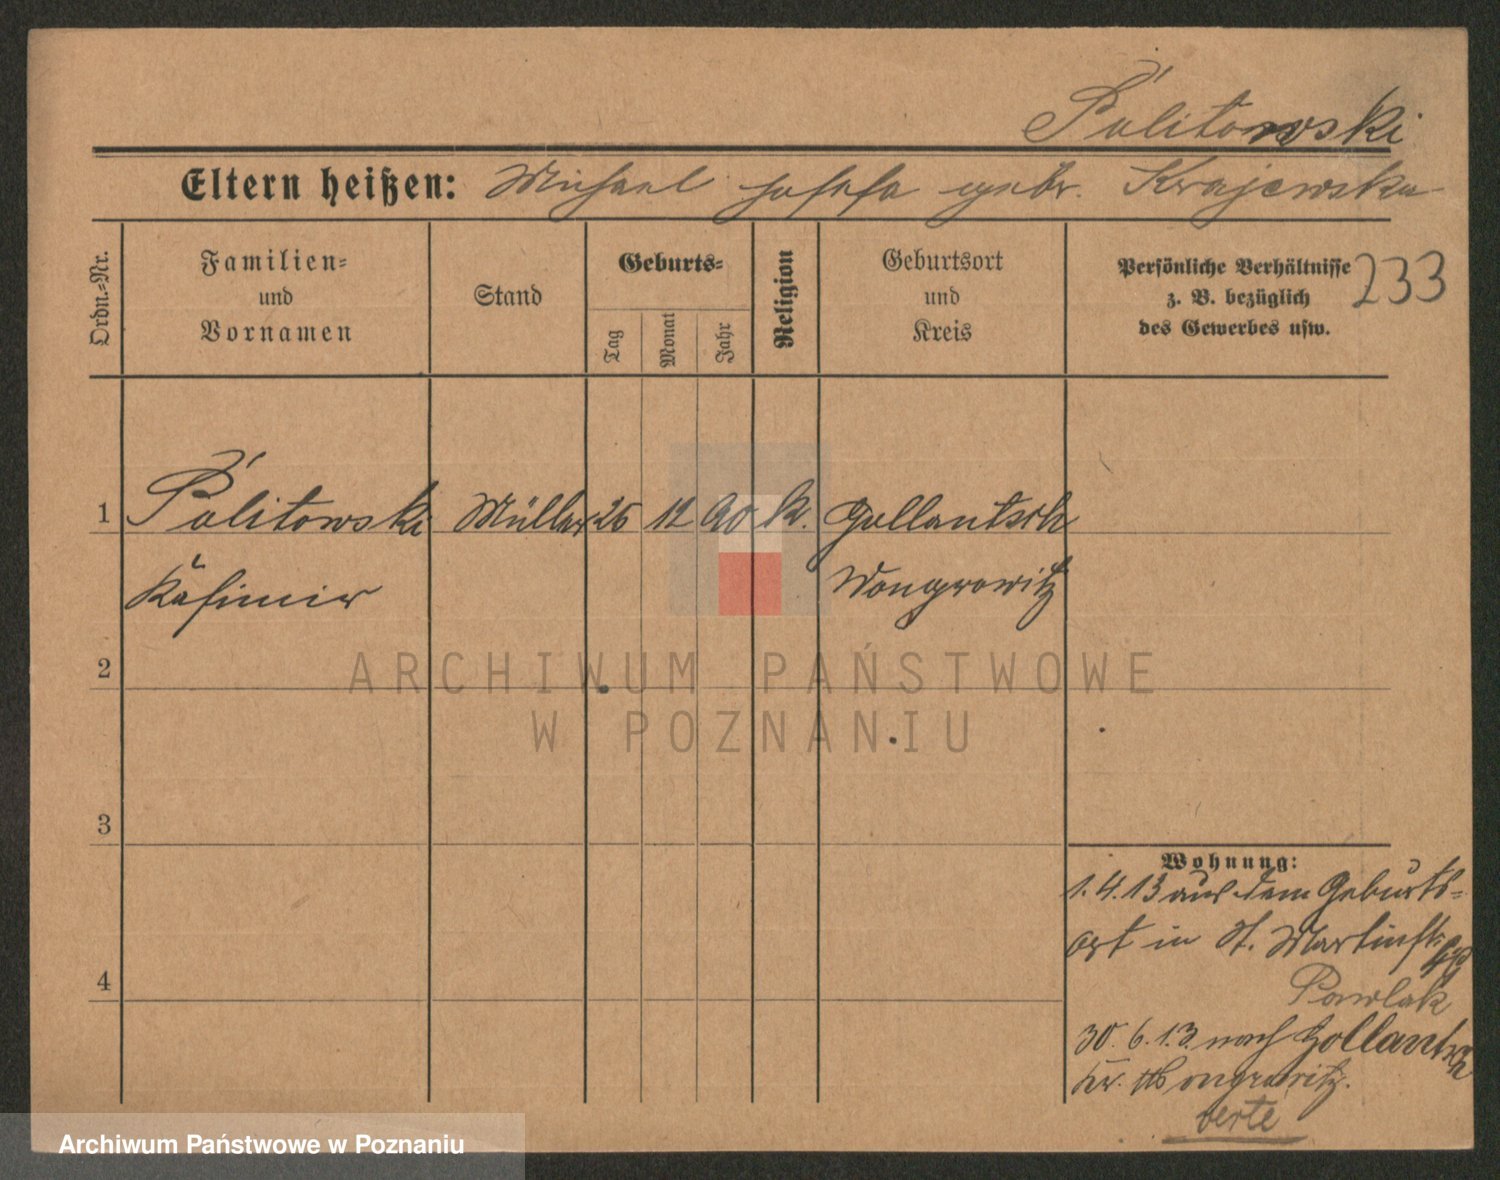 Politowski
Eltern heißen: Michael Josefa gebr. Krajewska
Ordn.-Nr.
Familien-
und
Vornamen
Stand
Geburts-
Tag
Monat
Jahr
Religion
Geburtsort
und
Kreis
Persönliche Verhältnisse
z. B. bezüglich
des Gewerbes usw.
233
1 Politowski Müller 26 12 90 k. Gollantsch
Kasimir Wongrowitz
2
3
4
Wohnung:
1. 4. 13 aus dem Geburts-
ort in St. Martinstr.
Pawlak
30. 6. 13. nach Gollantsch
Kr. Wongrowitz.
verte
ARCHIWUM PAŃSTWOWE
W POZNANIU
Archiwum Państwowe w Poznaniu